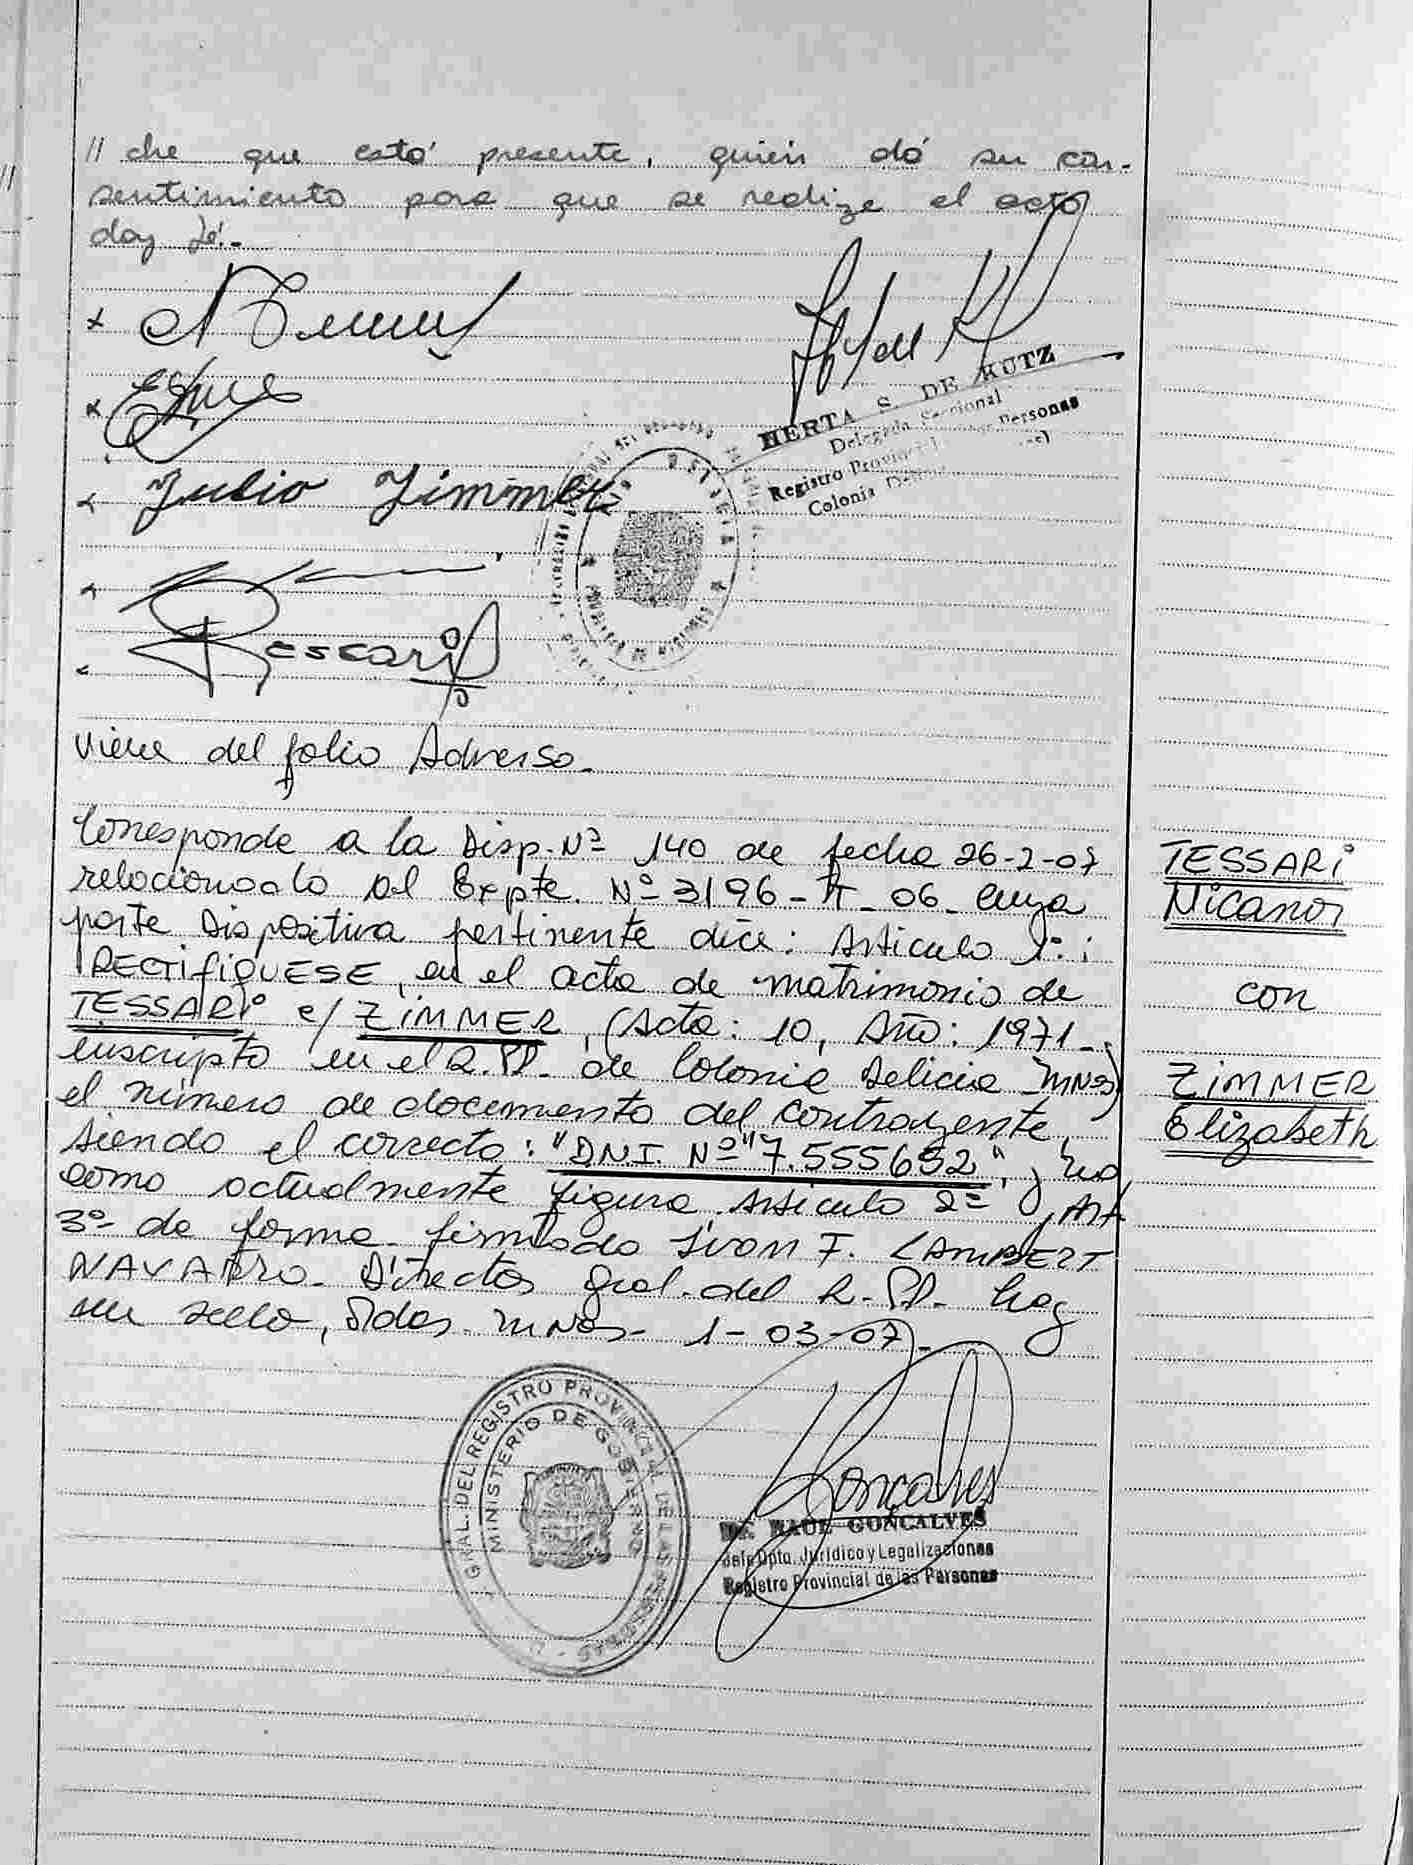 // che que está presente, quién dá su con-
sentimiento para que se realize el acto
doy fé.-
Julio Zimmer
HERTA S. DE KUTZ
Delegada Seccional
Registro Provincial de las Personas
Colonia
Tessari
viene del folio Adverso.-
Corresponde a la Disp. Nº 140 de fecha 26-2-07
relacionado al Expte. Nº 3196-T-06- cuya
parte Dispositiva pertinente dice: Articulo 1º:
RECTIFIQUESE, en el acta de matrimonio de
TESSARI c/ ZIMMER, (Acta: 10, Año: 1971-
inscripto en el R.P.P. de Colonia Delicia Mnes)
el número de documento del contrayente,
siendo el correcto: "D.N.I. Nº 7.555652", y no
como actualmente figura. Articulo 2º y Art
3º de forma. firmado Juan F. LAMBERT
NAVARRO. Director Gral. del R.P.P. hay
un sello, Pdas. Mnes- 1-03-07-
TESSARI
Nicanor
con
ZIMMER
Elizabeth
GRAL. DEL REGISTRO PROVINCIAL DE LAS PERSONAS
MINISTERIO DE GOBIERNO
Goncalves
Dr. RAUL GONCALVES
Jefe Dpto. Jurídico y Legalizaciones
Registro Provincial de las Personas